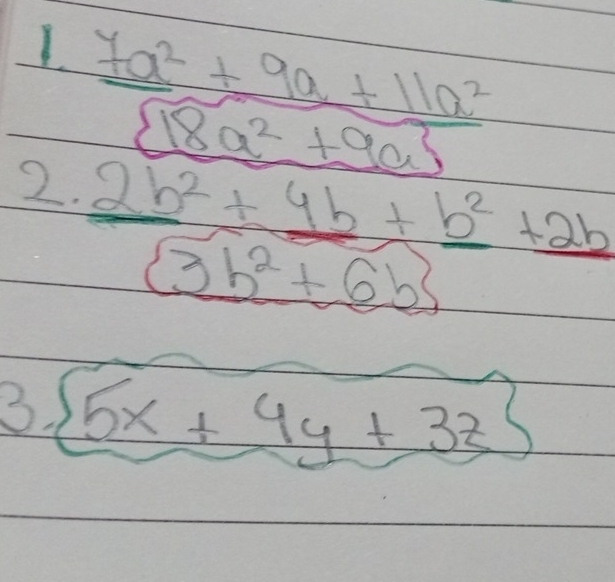 1. 7a² + 9a + 11a²
{18a² + 9a}
2. 2b² + 4b + b² + 2b
{3b² + 6b}
3. {5x + 4y + 3z}